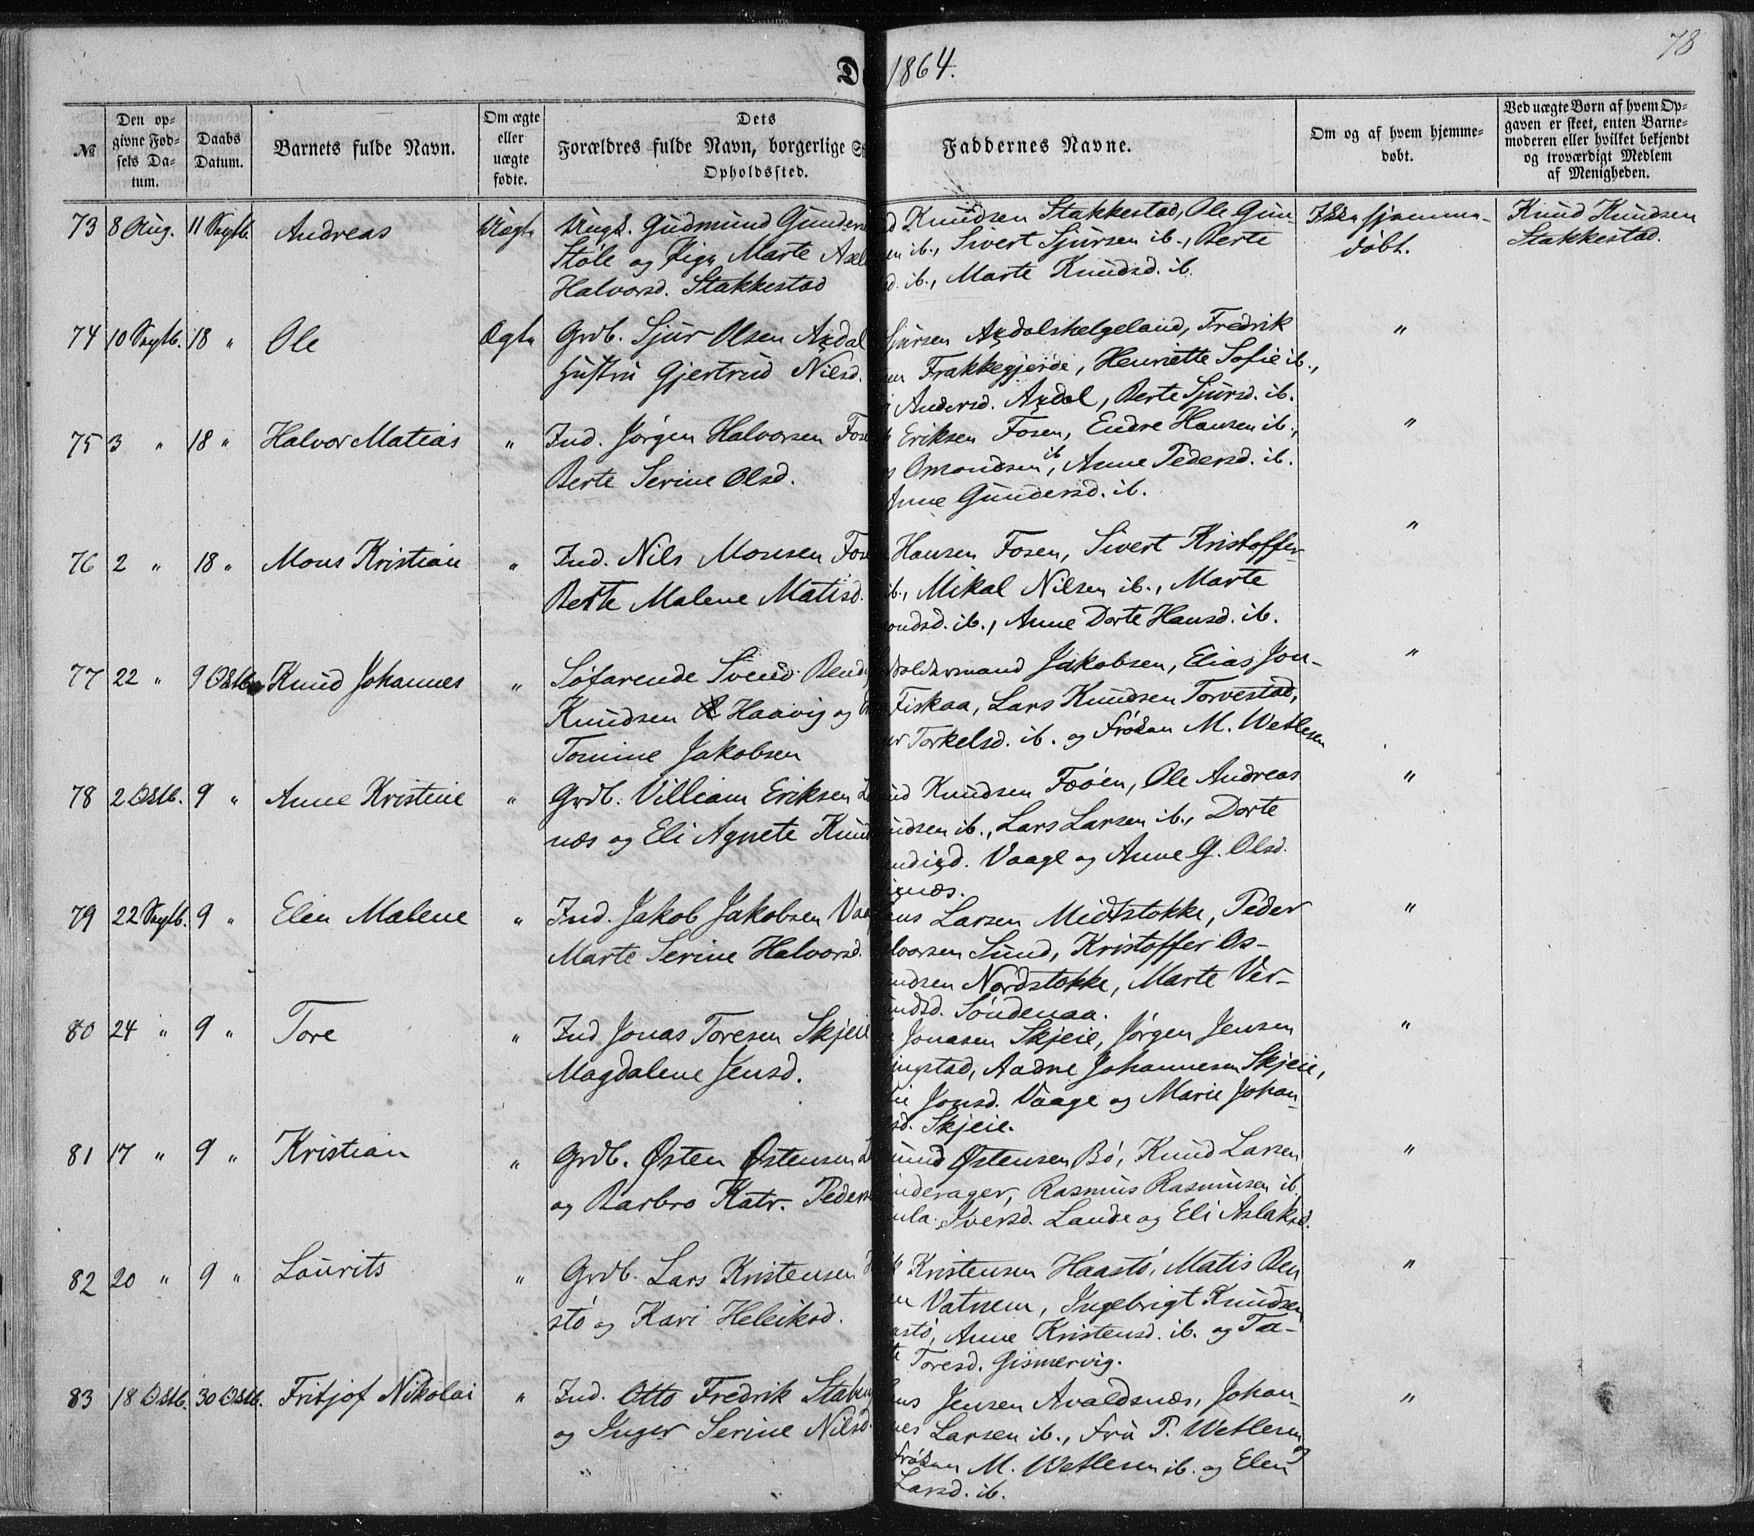 78
1864.
№
Den op-
givne Fød-
sels Da-
tum.
Daabs
Datum.
Barnets fulde Navn.
Om ægte
eller
uægte
fødte.
Dets
Forældres fulde Navn, borgerlige
Opholdssted.
Faddernes Navne.
Om og af hvem hjemme-
døbt.
Ved uægte Børn af hvem Op-
gaven er skeet, enten Barne-
moderen eller hvilket bekjendt
og troværdigt Medlem
af Menigheden.
73 8 Aug. 11 Septb. Andreas Uægte Ungk. Gudmund Gunders
Støle og Pige Marte Axeli
Halvorsd. Stakkestad
Knudsen Stakkestad, Ole Gun-
en ib., Sivert Sjursen ib., Berte
ib., Marte Knudsd. ib.
Ikke hjemme-
døbt.
Knud Knudsen
Stakkestad.
74 10 Septb. 18 " Ole Ægte Grdb. Sjur Olsen Axdal
Hustru Gjertrud Nilsd.
Sjursen Axdalshelgeland, Fredrik
en Frakkegjerde, Henriette Sofie ib.,
Andersd. Axdal, Berte Sjursd. ib.
"
75 3 " 18 " Halvor Matias " Ind. Jørgen Halvorsen Fose
Berte Serine Olsd.
Eriksen Fosen, Endre Hansen ib.,
Omondsen ib, Anne Pedersd. ib.
Anne Gundersd. ib.
"
76 2 " 18 " Mons Kristian " Ind. Nils Monsen Fose
Berte Malene Matisd.
Hansen Fosen, Sivert Kristoffer-
ib., Mikal Nilsen ib., Marte
ondsd. ib., Anne Dorte Hansd. ib.
"
77 22 " 9 Oktb. Knud Johannes " Søfarende Svend Bend
Knudsen Haavig og
Tomine Jakobsen
oldermand Jakobsen, Elias Jon-
Fiskaa, Lars Knudsen Torvestad,
er Torkelsd. ib. og Frøken M. Wetlesen
"
78 2 Oktb. 9 " Anne Kristine " Grdb. Villiam Eriksen
næs og Eli Agnete Knu
ud Knudsen Fæøen, Ole Andreas
udsen ib., Lars Larsen ib., Dorte
endigd. Vaage og Anne G. Olsd.
næs.
"
79 22 Septb. 9 " Elen Malene " Ind. Jakob Jakobsen Vaa
Marte Serine Halvorsd.
us Larsen Midtstokke, Peder
lvorsen Sund, Kristoffer Os-
undsen Nordstokke, Marte Ver-
undsd. Søndenaa.
"
80 24 " 9 " Tore " Ind Jonas Toresen Skjeie
Magdalene Jensd.
Jonasen Skjeie, Jørgen Jensen
ingstad, Aadne Johannesen Skjeie,
ie Jonsd. Vaage og Marie Johan-
sd. Skjeie.
"
81 17 " 9 " Kristian " Grdb. Østen Østensen
og Barbro Katr. Peders
mund Østensen Bø, Knud Larsen
inderager, Rasmus Rasmusen ib.
ula. Iversd. Lande og Eli Aslaksd.
"
82 20 " 9 " Laurits " Grdb. Lars Kristensen
stø og Kari Heleiksd.
Kristensen Haastø, Matis Ben
Vatnem, Ingebrigt Knudsen
astø, Anne Kristensd. ib. og Ta-
te Toresd. Gismervig.
"
83 18 Oktb. 30 Oktb. Fritjof Nikolai " Ind. Otto Fredrik Stabun
og Inger Serine Nilsd.
us Jensen Avaldsnæs, Johan-
nes Larsen ib., Fru T. Wetlesen
Frøken M. Wetlesen ib. og Elen
Larsd. ib.
"